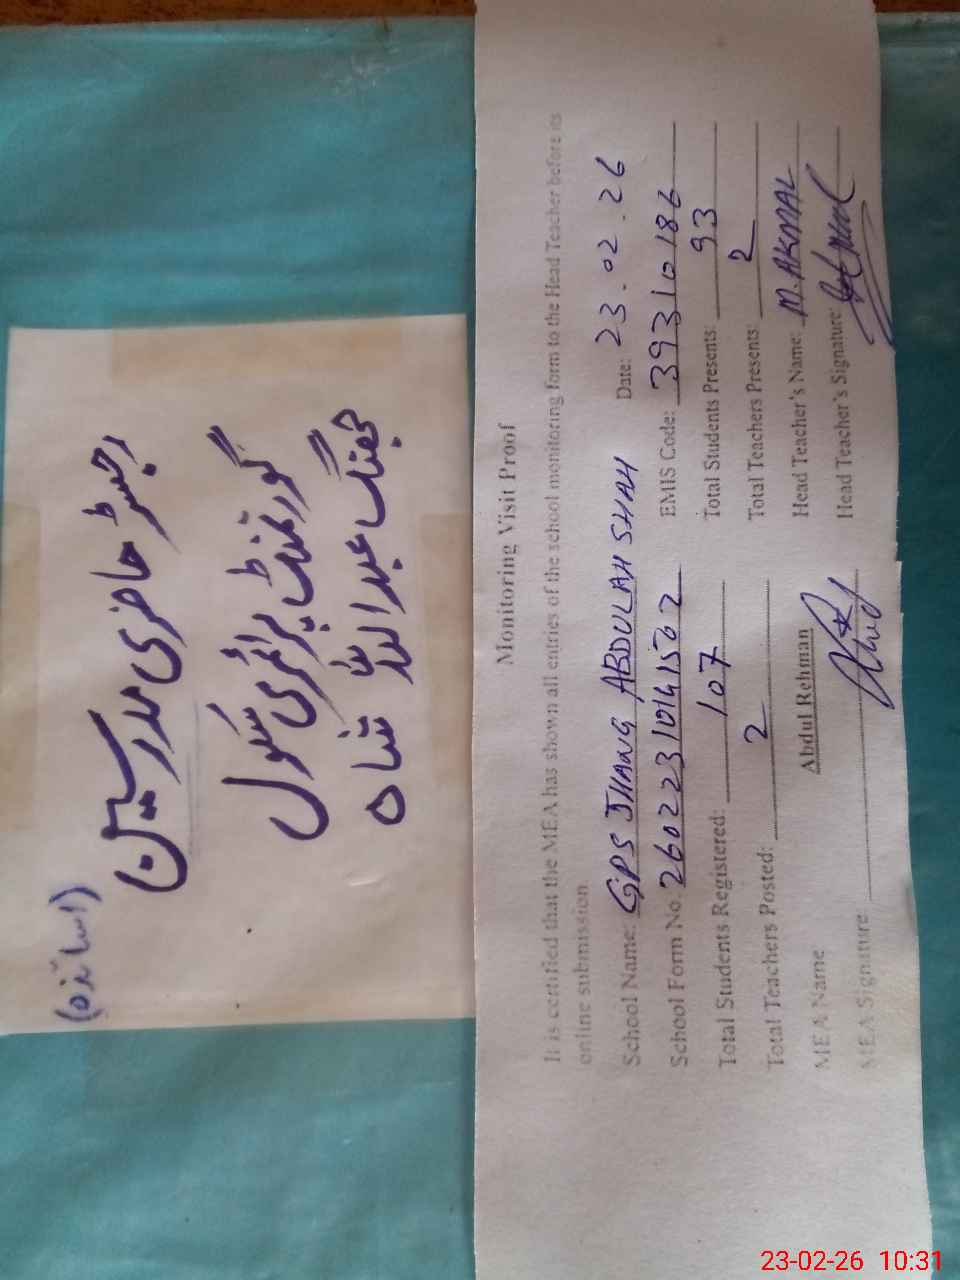 (اساتذہ)
رجسٹر حاضری مدرسین
گورنمنٹ پرائمری سکول
جھنگ عبداللہ شاہ
Monitoring Visit Proof
It is certified that the MEA has shown all entries of the school monitoring form to the Head Teacher before its
online submission.
School Name: GPS JHANG ABDULAH SHAH Date: 23.02.26
School Form No. 26022310141502 EMIS Code: 39310186
Total Students Registered: 107 Total Students Presents: 93
Total Teachers Posted: 2 Total Teachers Presents: 2
MEA Name Abdul Rehman Head Teacher's Name: M. AKMAL
MEA Signature: Head Teacher's Signature:
23-02-26 10:31